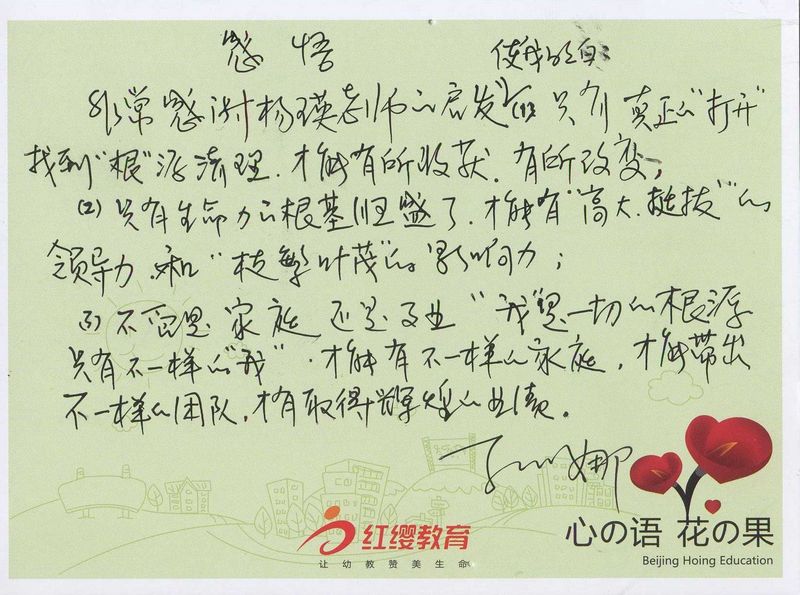 感悟 使我明白:
非常感谢杨瑛老师的启发 (1) 只有真正的"打开"
找到"根"源清理,才能有所收获,有所改变;
(2) 只有生命力的根基旺盛了,才能有"高大、挺拔"的
领导力和"枝繁叶茂"的影响力;
(3) 不管是家庭还是事业"我"是一切的根源
只有不一样的"我",才能有不一样的家庭,才能带出
不一样的团队,才有取得辉煌的业绩。
娜
红缨教育
让幼教赞美生命
心の语 花の果
Beijing Hoing Education